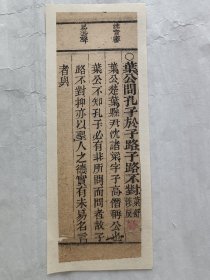 沈音審
○葉公問孔子於子路子路不對葉舒涉反
葉公楚葉縣尹沈諸梁字子高僭稱公也
葉公不知孔子必有非所問而問者故子
路不對抑亦以聖人之德實有未易名言
者與